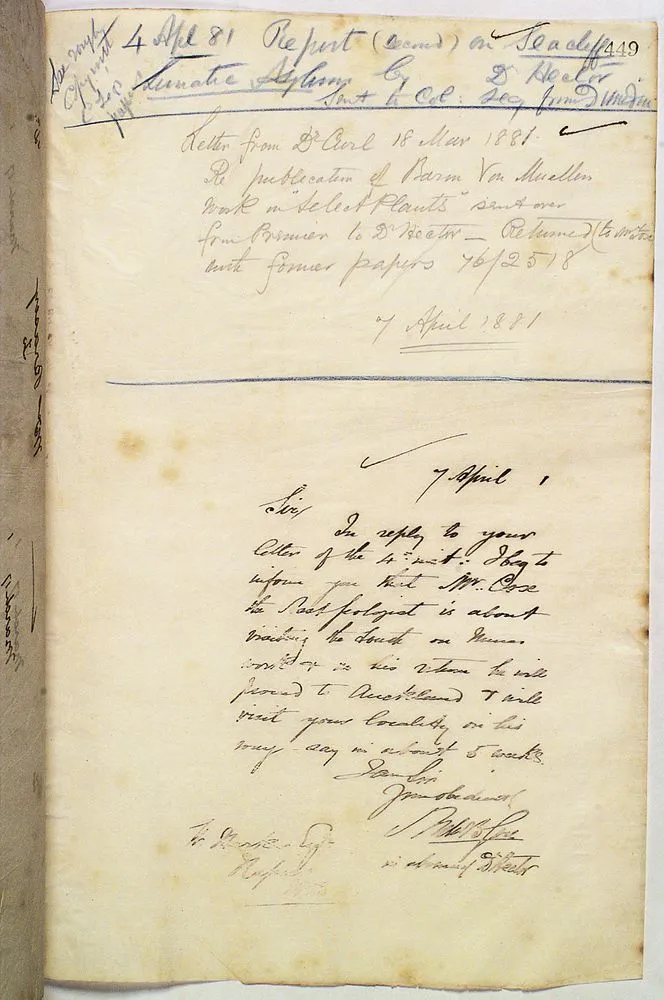 449
See rough
Copy
papers
4 Apl 81 Report (second) on Seacliff
Lunatic Asylum by Dr Hector
Sent to Col: Secy from
Letter from Dr Curl 18 Mar 1881.
Re publication of Baron Von Mueller
work on "Select Plants" sent over
from Premier to Dr Hector — Returned (to Mr Fox
with former papers 76/2518
7 April 1881
7 April 1
Sir
In reply to your
letter of the 4th inst: I beg to
inform you that Mr. Cox
the Asst geologist is about
visiting the South on Mines
work & on his return he will
proceed to Auckland & will
visit your locality on his
way - say in about 5 weeks.
I am Sir
Your obedient
in absence of Dr Hector
Esq